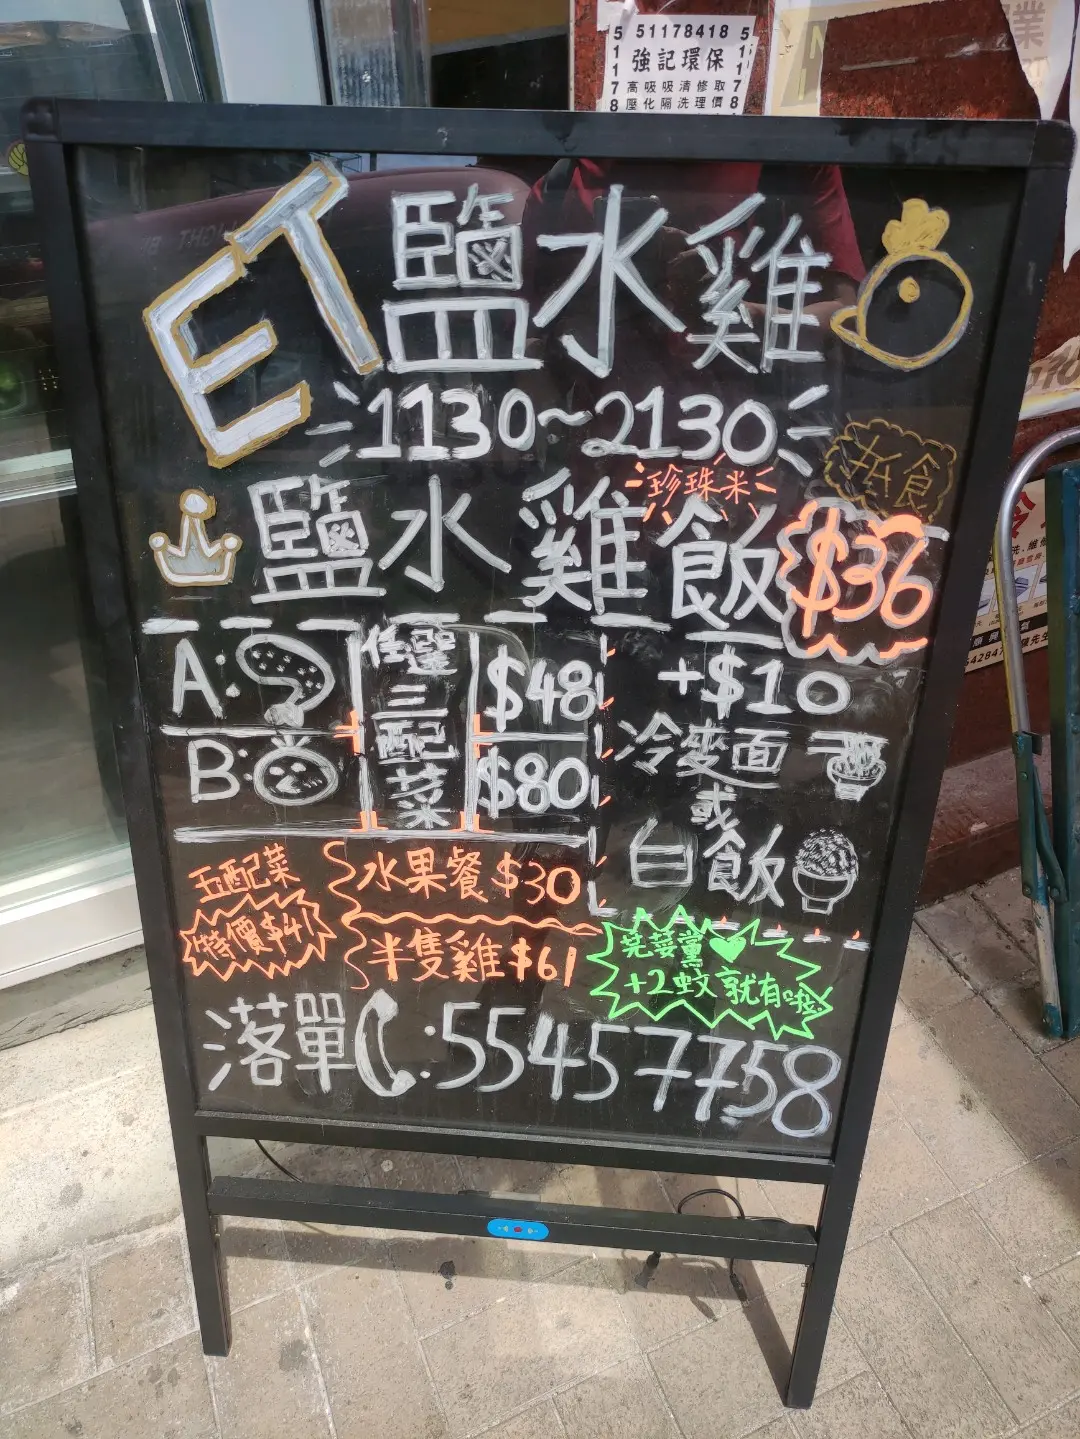 5 51178418 5
1 強記環保 1
1 高吸吸清修取 1
7 壓化隔洗理價 7
8 8
業
ET 鹽水雞
1130~2130
堂食
珍珠米
鹽水雞飯 $36
A: 任選三配菜 $48
B: $80
+$10
冷麥面
或
白飯
五配菜
特價$41
水果餐 $30
半隻雞 $61
芫荽黨
+2蚊就有啦
落單 : 55457758